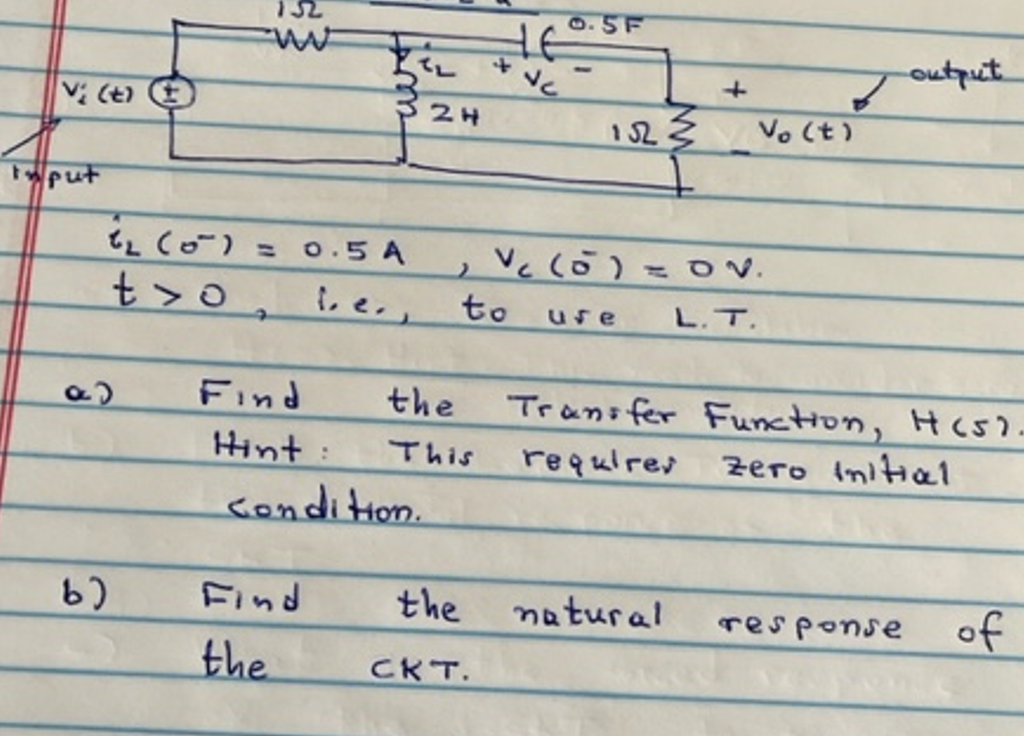 1Ω
0.5F
iL
+ Vc -
Vi (t)
±
2H
1Ω
+
Vo (t)
-
output
Input
iL (0-) = 0.5 A , Vc (0-) = 0 V.
t > 0 , i.e., to use L.T.
a) Find the Transfer Function, H(s).
Hint : This requires zero initial
condition.
b) Find the natural response of
the CKT.